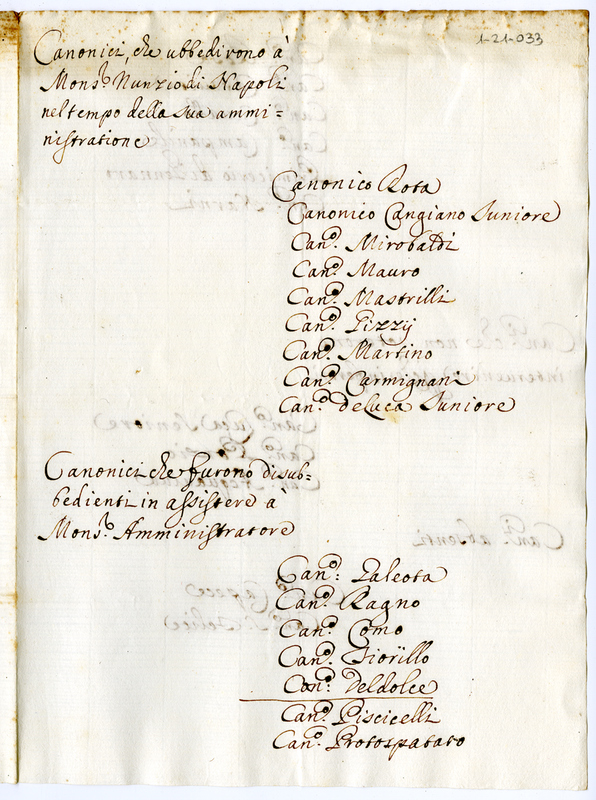 1-21-033
Canonici, che ubbedirono à
Mons.r Nunzio di Napoli
nel tempo della sua ammi=
nistratione
Canonico Rota
Canonico Cangiano Juniore
Can.o Mirobaldi
Can.o Mauro
Can.o Mastrilli
Can.o Pizzij
Can.o Martino
Can.o Carmignani
Can.o de Luca Juniore
Canonici che furono disub=
bedienti in assistere à
Mons.r Amministratore
Can.o: Galeota
Can.o Ragno
Can.o Como
Can.o Fiorillo
Can.o: Deldolce
Can.o Piscicelli
Can.o Protospataro